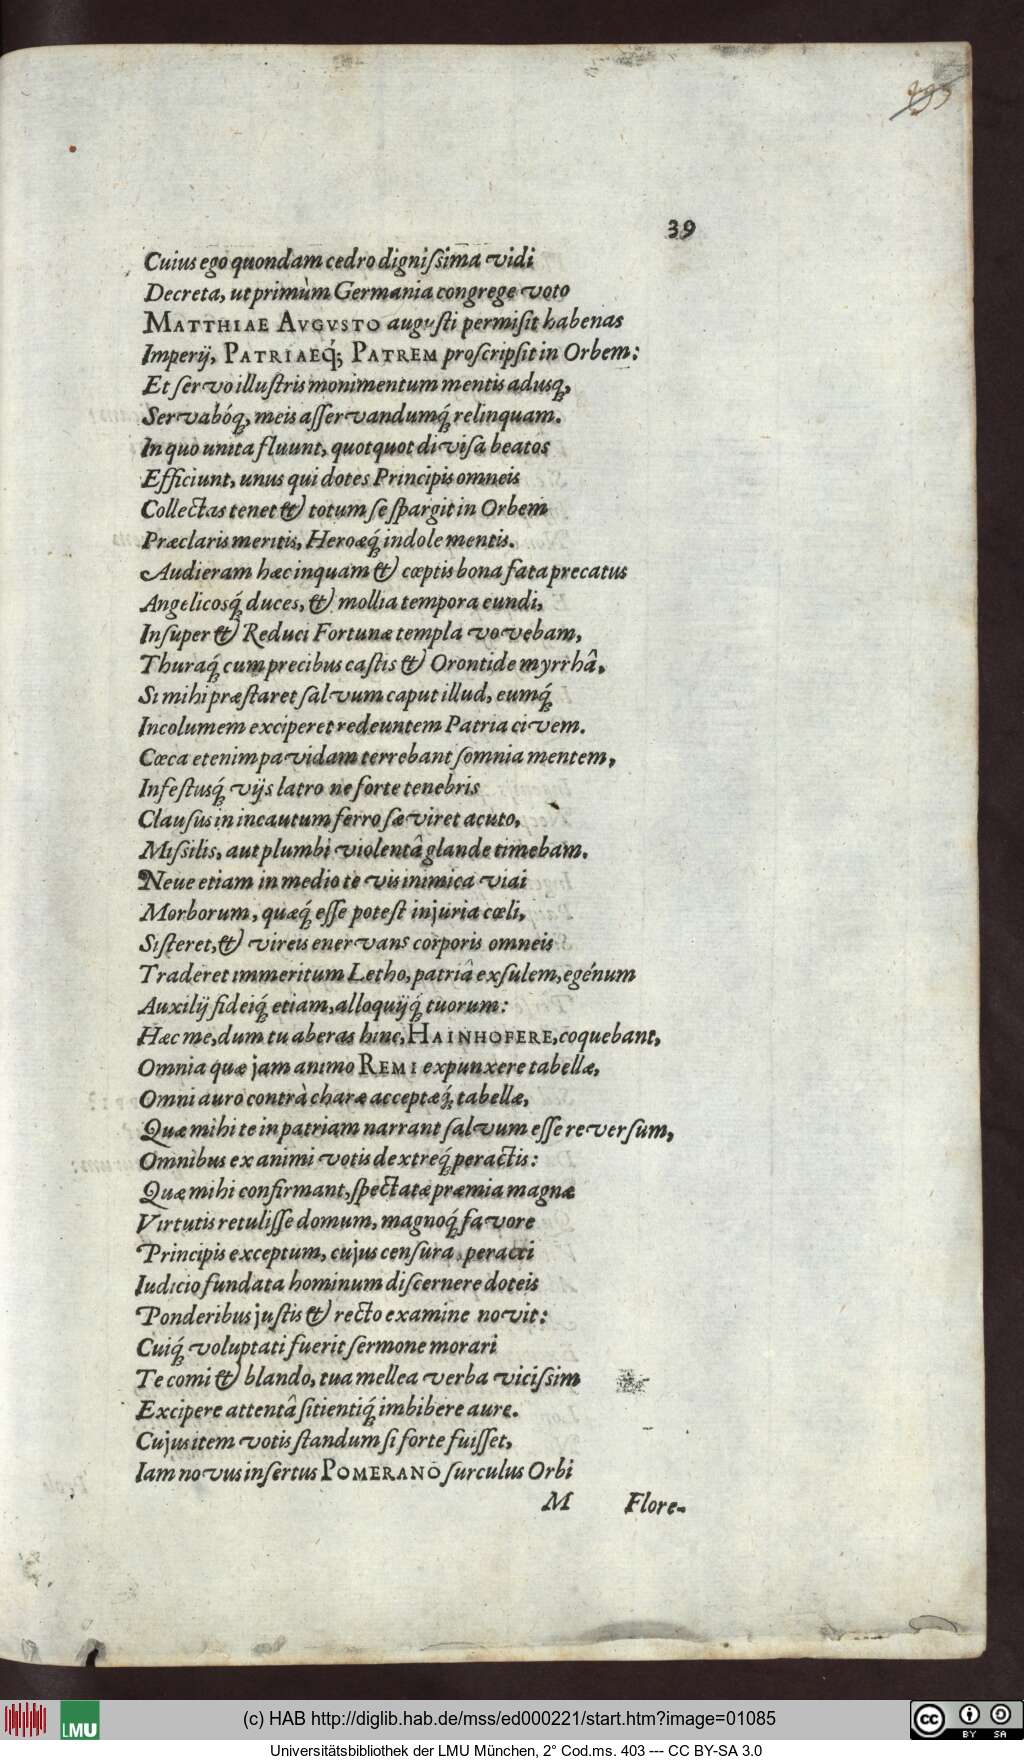 39
Cuius ego quondam cedro dignißima vidi
Decreta, ut primùm Germania congrege voto
MATTHIAE AVGVSTO augusti permisit habenas
Imperij, PATRIAEq́; PATREM proscripsit in Orbem:
Et servo illustris monimentum mentis adusq,
Servabóq, meis asservandumq́ relinquam.
In quo unita fluunt, quotquot divisa beatos
Efficiunt, unus qui dotes Principis omneis
Collectas tenet & totum se spargit in Orbem
Præclaris meritis, Heroæq́ indole mentis.
Audieram hæc inquam & cœptis bona fata precatus
Angelicosq́ duces, & mollia tempora eundi,
Insuper & Reduci Fortunæ templa vovebam,
Thuraq́ cum precibus castis & Orontide myrrhâ,
Si mihi præstaret salvum caput illud, eumq́
Incolumem exciperet redeuntem Patria civem.
Cœca etenim pavidam terrebant somnia mentem,
Infestusq́ vijs latro ne forte tenebris
Clausus in incautum ferro sæviret acuto,
Mißilis, aut plumbi violentâ glande timebam.
Neue etiam in medio te vis inimica viai
Morborum, quæq́ esse potest injuria cœli,
Sisteret, & vireis enervans corporis omneis
Traderet immeritum Letho, patriâ exsulem, egénum
Auxilij fideiq́ etiam, alloquijq́ tuorum:
Hæc me, dum tu aberas hinc, HAINHOFERE, coquebant,
Omnia quæ jam animo REMI expunxere tabellæ,
Omni auro contrà charæ acceptæq́ tabellæ,
Quæ mihi te in patriam narrant salvum esse reversum,
Omnibus ex animi votis dextreq́ peractis:
Quæ mihi confirmant, spectatæ præmia magnæ
Virtutis retulisse domum, magnoq́ favore
Principis exceptum, cujus censura peracri
Iudicio fundata hominum discernere doteis
Ponderibus justis & recto examine novit:
Cuiq́ voluptati fuerit sermone morari
Te comi & blando, tua mellea verba vicißim
Excipere attentâ sitientiq́ imbibere aure.
Cujus item votis standum si forte fuisset,
Iam novus insertus POMERANO surculus Orbi
M Flore-
LMU
(c) HAB http://diglib.hab.de/mss/ed000221/start.htm?image=01085
cc BY SA
Universitätsbibliothek der LMU München, 2° Cod.ms. 403 --- CC BY-SA 3.0